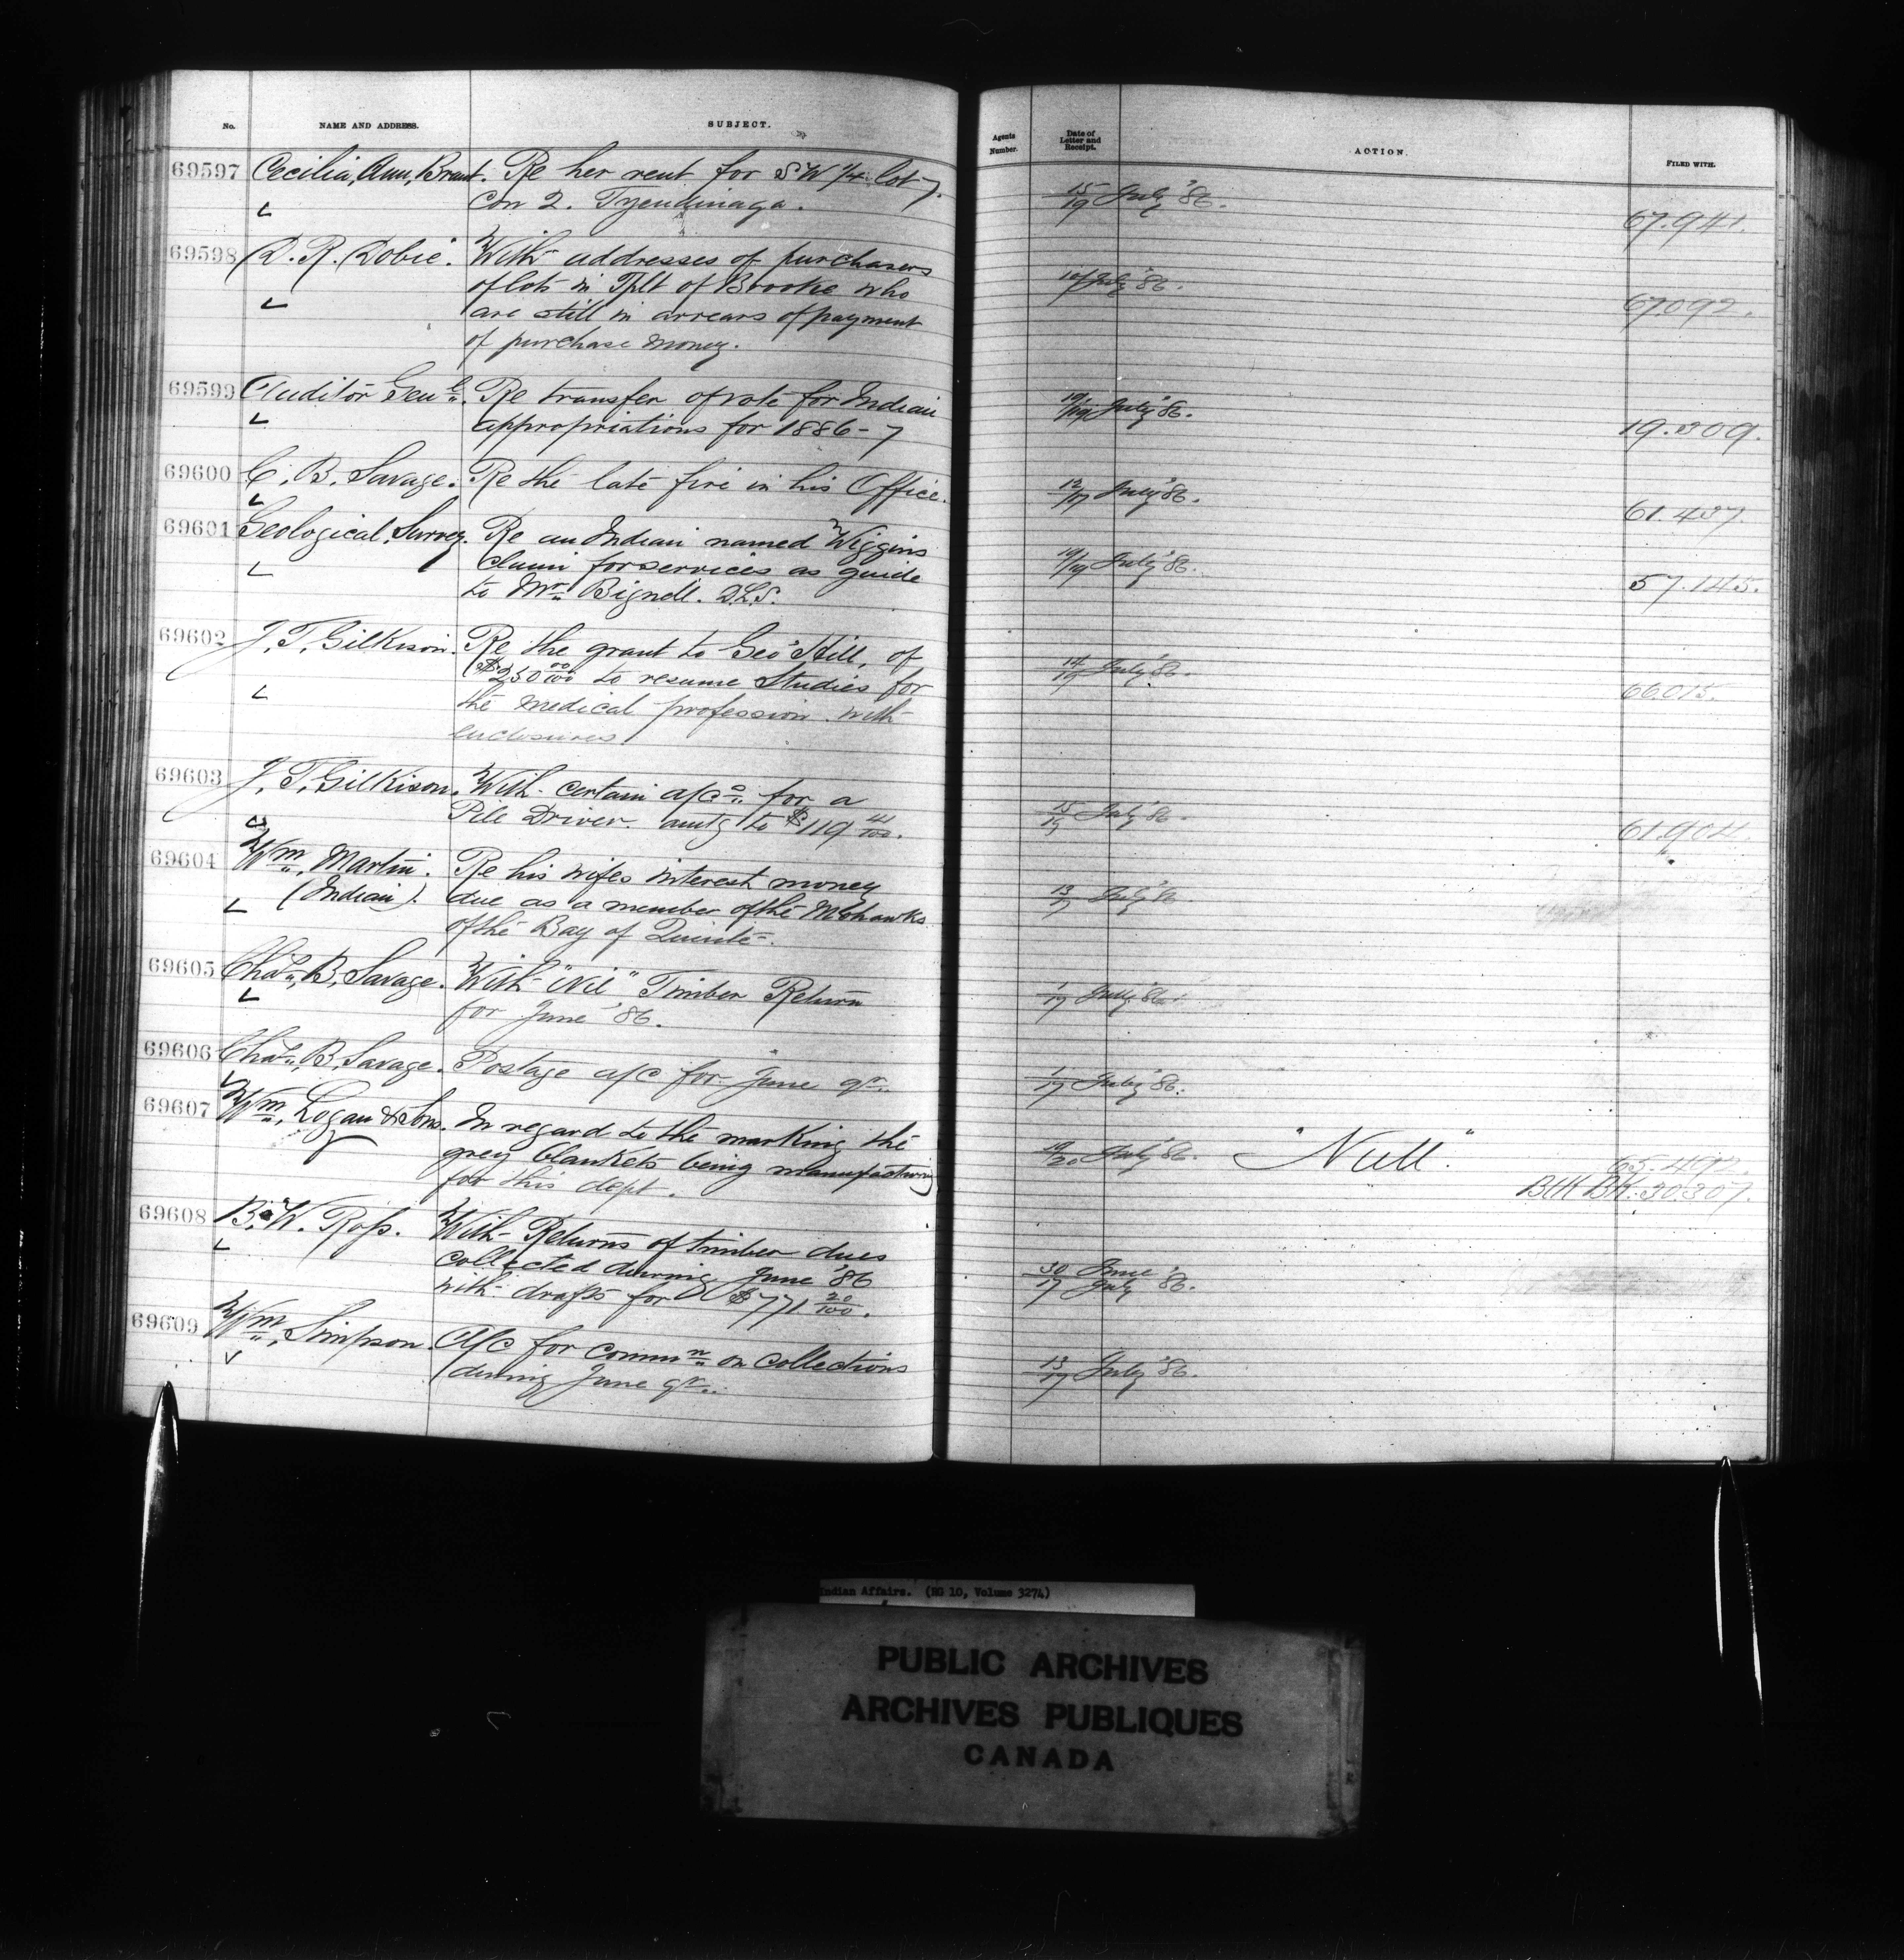 No. NAME AND ADDRESS. SUBJECT. Agents Number. Date of Letter and Receipt. ACTION. FILED WITH.
69597 Cecilia, Ann, Brant. Re her rent for S W 1/4 lot 7. 15/19 July '86. 67.941.
Con 2. Tyendinaga.
69598 D. R. Dobie. With addresses of purchasers July '86. 67092.
of lots in Tplt of Brooke who
are still in arrears of payment
of purchase money.
69599 Auditor Genl. Re transfer of vote for Indian 19/19 July '86. 19.309.
appropriations for 1886-7
69600 C. B. Savage. Re the late fire in his Office. 12/17 July '86. 61.437.
69601 Geological Survey. Re an Indian named Wiggins 19/19 July '86. 57.145.
claim for services as guide
to Mr. Bignell. D.L.S.
69602 J. T. Gilkison. Re the grant to Geo Hill, of 14/19 July '86. 66.015.
$250 00/100 to resume Studies for
the medical profession with
enclosures.
69603 J. T. Gilkison. With certain a/cs. for a 15/19 July '86. 61.904.
Pile Driver. amtg to $119 41/100.
69604 Wm. Martin. Re his wifes interest money 13/ July '86
(Indian). due as a member of the Mohawks
of the Bay of Quinte.
69605 Chas. B. Savage. With "Nil" Timber Return 1/17 July '86.
for June '86.
69606 Chas. B. Savage. Postage a/c for June qr. 1/17 July '86.
69607 Wm. Logan & Sons. In regard to the marking the 19/20 July '86. "Null." 65.492.
grey blankets being manufacturing BlK BK. 30307.
for this dept.
69608 B. W. Ross. With Returns of timber dues 30 June
collected during June '86 17 July '86.
with drafts for $771 20/100.
69609 Wm. Simpson. A/C for Commn. on Collections 13/17 July '86.
during June qr.
Indian Affairs. (RG 10, Volume 3274)
PUBLIC ARCHIVES
ARCHIVES PUBLIQUES
CANADA